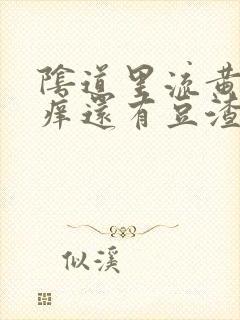 陰道里流黃
痒還有豆渣
似溪